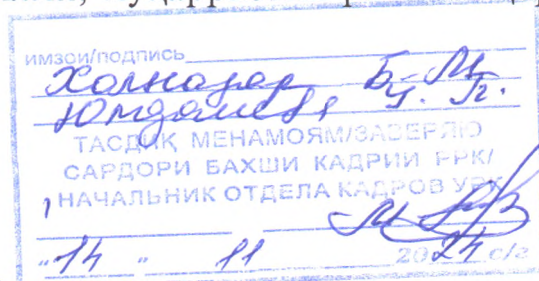 ИМЗОИ/ПОДПИСЬ
Холназар Б. М.
Юлдашев
ТАСДИҚ МЕНАМОЯМ/ЗАВЕРЯЮ
САРДОРИ БАХШИ КАДРИИ РРК/
НАЧАЛЬНИК ОТДЕЛА КАДРОВ УРК
"14" 11 2024 с/г